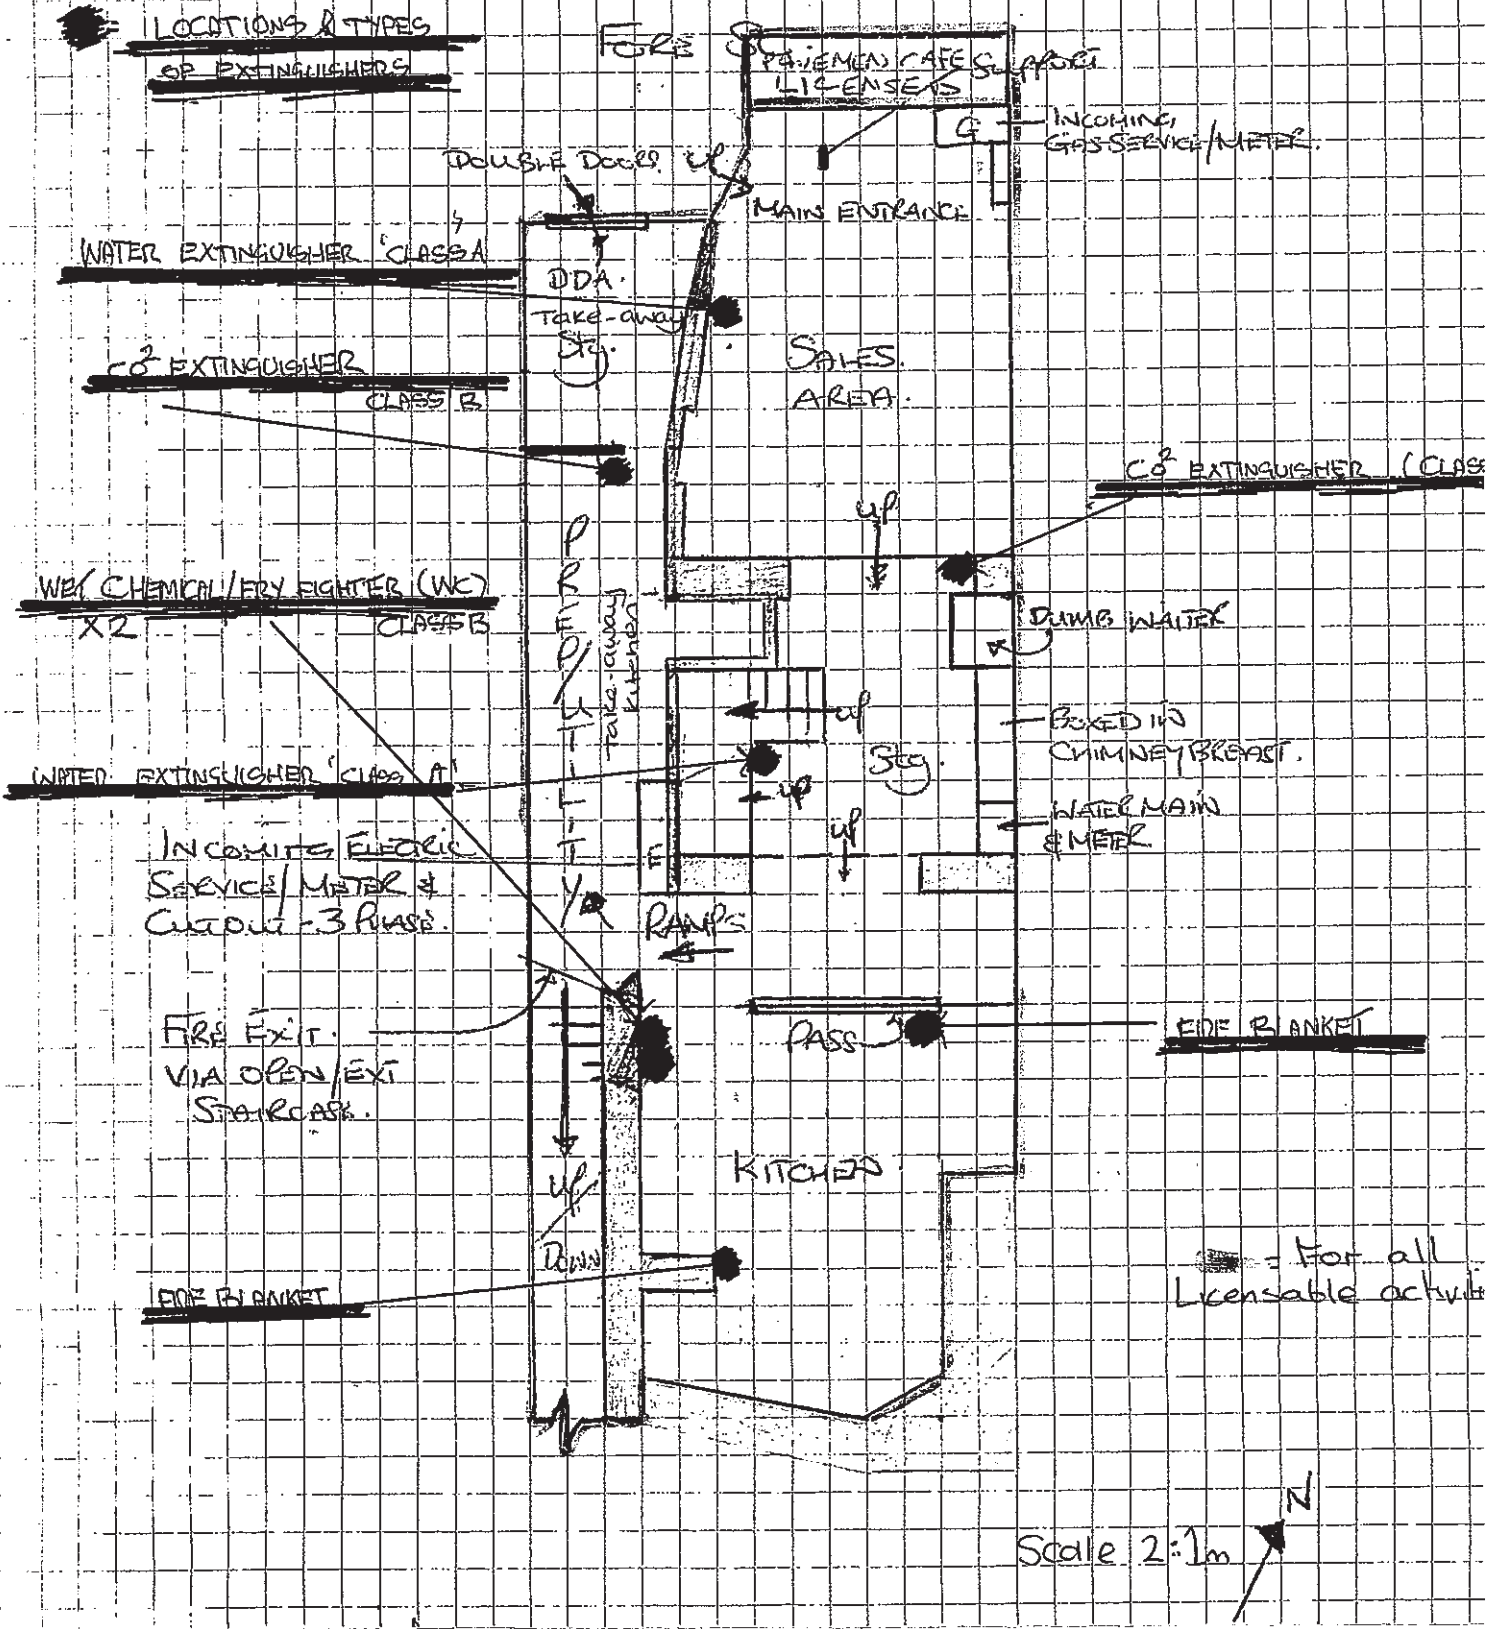 LOCATIONS & TYPES
OF EXTINGUISHERS
FORE
PAVEMENT CAFE
LICENSE
SUPPORT
G
INCOMING
GAS SERVICE/METER.
DOUBLE DOORS.
UP
MAIN ENTRANCE
WATER EXTINGUISHER 'CLASS A'
DDA.
Take-away
Stg.
CO² EXTINGUISHER
CLASS B
SALES
AREA.
CO² EXTINGUISHER (CLASS
UP
WET CHEMICAL/FRY FIGHTER (WC)
X2 CLASS B
PREP/UTILITY
Take-away
Kitchen
DUMB WAITER
UP
BOXED IN
CHIMNEY BREAST.
Stg.
WATER EXTINGUISHER 'CLASS A'
UP
UP
WATER MAIN
& METER.
INCOMING ELECTRIC
SERVICE/METER &
CUTOUT - 3 PHASE.
E
RAMPS
FIRE EXIT.
VIA OPEN/EXT
STAIRCASE.
PASS
FIRE BLANKET
KITCHEN.
UP
DOWN
FIRE BLANKET
= For all
Licensable activit
Scale 2:1m
N